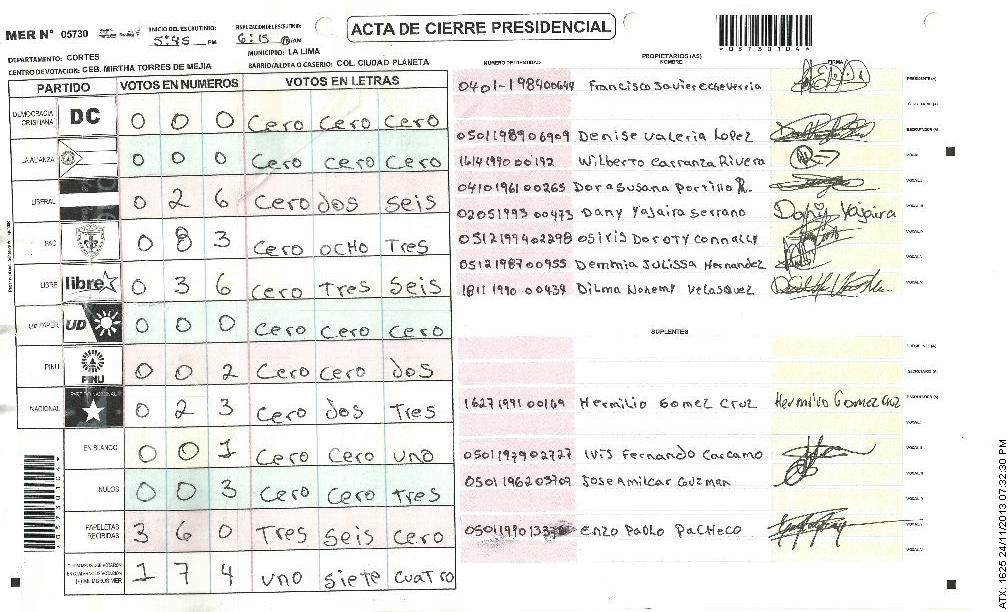 MER N° 05730
INICIO DEL ESCRUTINIO: 5:45 PM
FINALIZACION DEL ESCRUTINIO: 6:15
ACTA DE CIERRE PRESIDENCIAL
DEPARTAMENTO: CORTES
MUNICIPIO: LA LIMA
CENTRO DE VOTACION: CEB. MIRTHA TORRES DE MEJIA
BARRIO/ALDEA O CASERIO: COL. CIUDAD PLANETA
PARTIDO VOTOS EN NUMEROS VOTOS EN LETRAS
DEMOCRACIA CRISTIANA DC 0 0 0 Cero Cero Cero
LA ALIANZA 0 0 0 Cero cero cero
LIBERAL 0 2 6 Cero dos seis
PAC 0 8 3 Cero ocHo Tres
LIBRE libre 0 3 6 Cero Tres Seis
UD 0 0 0 Cero Cero Cero
PINU PINU 0 0 2 Cero cero dos
NACIONAL 0 2 3 Cero dos Tres
EN BLANCO 0 0 1 Cero Cero uno
NULOS 0 0 3 Cero Cero tres
PAPELETAS RECIBIDAS 3 6 0 Tres seis cero
1 7 4 uno siete cuatro
NUMERO DE IDENTIDAD PROPIETARIOS (AS) NOMBRE FIRMA
0401-198400649 Francisco Javier echeverria
0501198906909 Denise Valeria Lopez
1614199000192 Wilberto Carranza Rivera
0410196100265 Dora Susana Portillo R.
0205199300473 Dany Yajaira Serrano Dany Yajaira
0512199402298 Osiris Doroty Connally
0512198700955 Demmia Julissa Hernandez
1811199000439 Dilma Nohemy Velasquez
SUPLENTES
1627199100169 Hermilio Gomez Cruz Hermilio Gomez Cruz
0501197902727 Luis Fernando Carcamo
0501196203709 Jose Amilcar Guzman
Enzo Pablo Pacheco
ATX: 1625 24/11/2013 07:32:30 PM